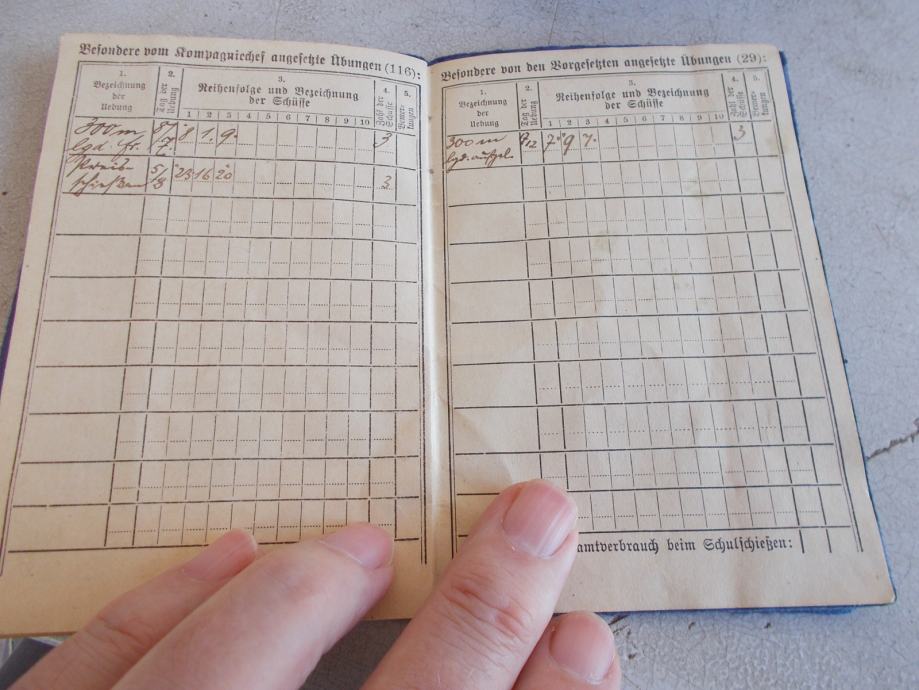 Besondere vom Kompagniechef angesetzte Übungen (116):
1. Bezeichnung der Uebung
2. Tag der Uebung
3. Reihenfolge und Bezeichnung der Schüsse
4. Zahl der Schüsse
5. Bemerkungen
1 2 3 4 5 6 7 8 9 10
300 m 8/7. 8 1. 9. 3
lgd. fr.
Preis- 5/8 23 16 20 3
schießen
Besondere von den Vorgesetzten angesetzte Übung (29):
1. Bezeichnung der Uebung
2. Tag der Uebung
3. Reihenfolge und Bezeichnung der Schüsse
4. Zahl der Schüsse
5. Bemerkungen
1 2 3 4 5 6 7 8 9 10
300 m 7. 9 7. 3
lgd. aufgel.
amtverbrauch beim Schulschießen: